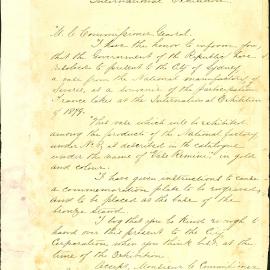 International Exhibition
M. C. Commissioner General.
I have the honor to inform you,
that the Government of the Republic have
resolved to present to the City of Sydney
a vase from the National manufactory of
Sèvres, as a souvenir of the participation
France takes at the International Exhibition
of 1879.
This vase which will be exhibited
among the products of the National factory
under No. 2, is described in the catalogue
under the name of "Vase Rimini", in gold
and colour.
I have given instructions to cause
a commemoration plate to be engraved,
and to be placed at the base of the
bronze stand.
I beg that you be kind enough to
hand over this present to the City
Corporation when you think best, at the
time of the Exhibition.
Accept, Monsieur C Commissioner